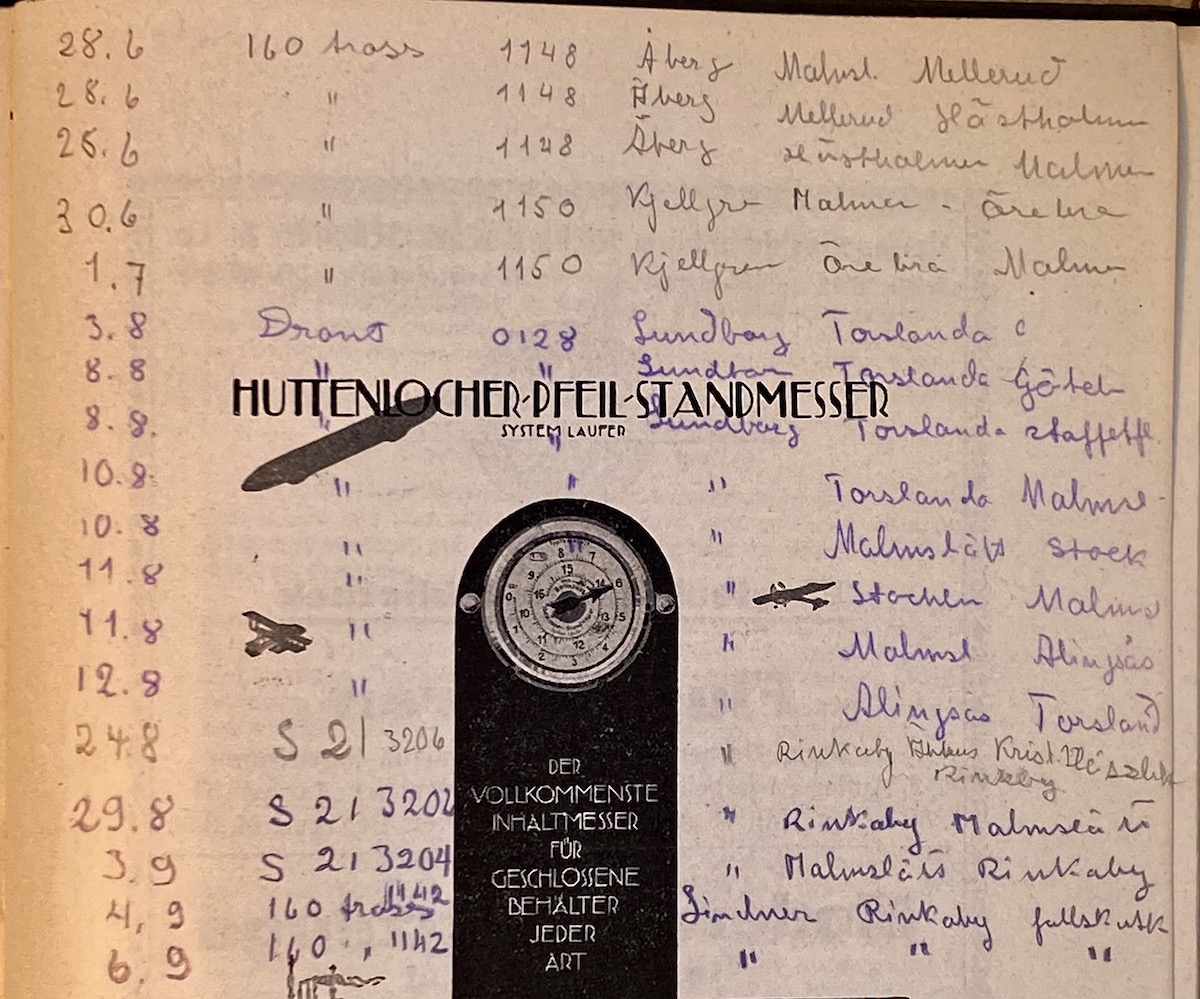 28.6 160 trass 1148 Åberg Malmsl. Mellerud
28.6 " 1148 Åberg Mellerud Hästholmen
28.6 " 1148 Åberg Hästholmen Malmen
30.6 " 1150 Kjellgren Malmen - Örebro
1.7 " 1150 Kjellgren Örebro Malmen
3.8 Dront 0128 Lundborg Torslanda
8.8 " " Lundbor Torslanda Göteb
HUTTENLOCHER-PFEIL-STANDMESSER
8.8. " " Lundborg Torslanda staffetfl.
SYSTEM LAUFER
10.8 " " " Torslanda Malmsl
10.8 " " " Malmslätt Stock
11.8 " " Stocken Malmsl
11.8 " " Malmsl Alingsås
12.8 " " Alingsås Torsland
24.8 S 21 3206 " Rinkaby Åhus Krist.
Rinkaby
29.8 S 21 3202 " Rinkaby Malmslätt
3.9 S 21 3204 " Malmslätt Rinkaby
4,9 160 trass 1142 Lindner Rinkaby fallskutk
6.9 160 " 1142 " " "
DER
VOLLKOMMENSTE
INHALTMESSER
FÜR
GESCHLOSSENE
BEHÄLTER
JEDER
ART